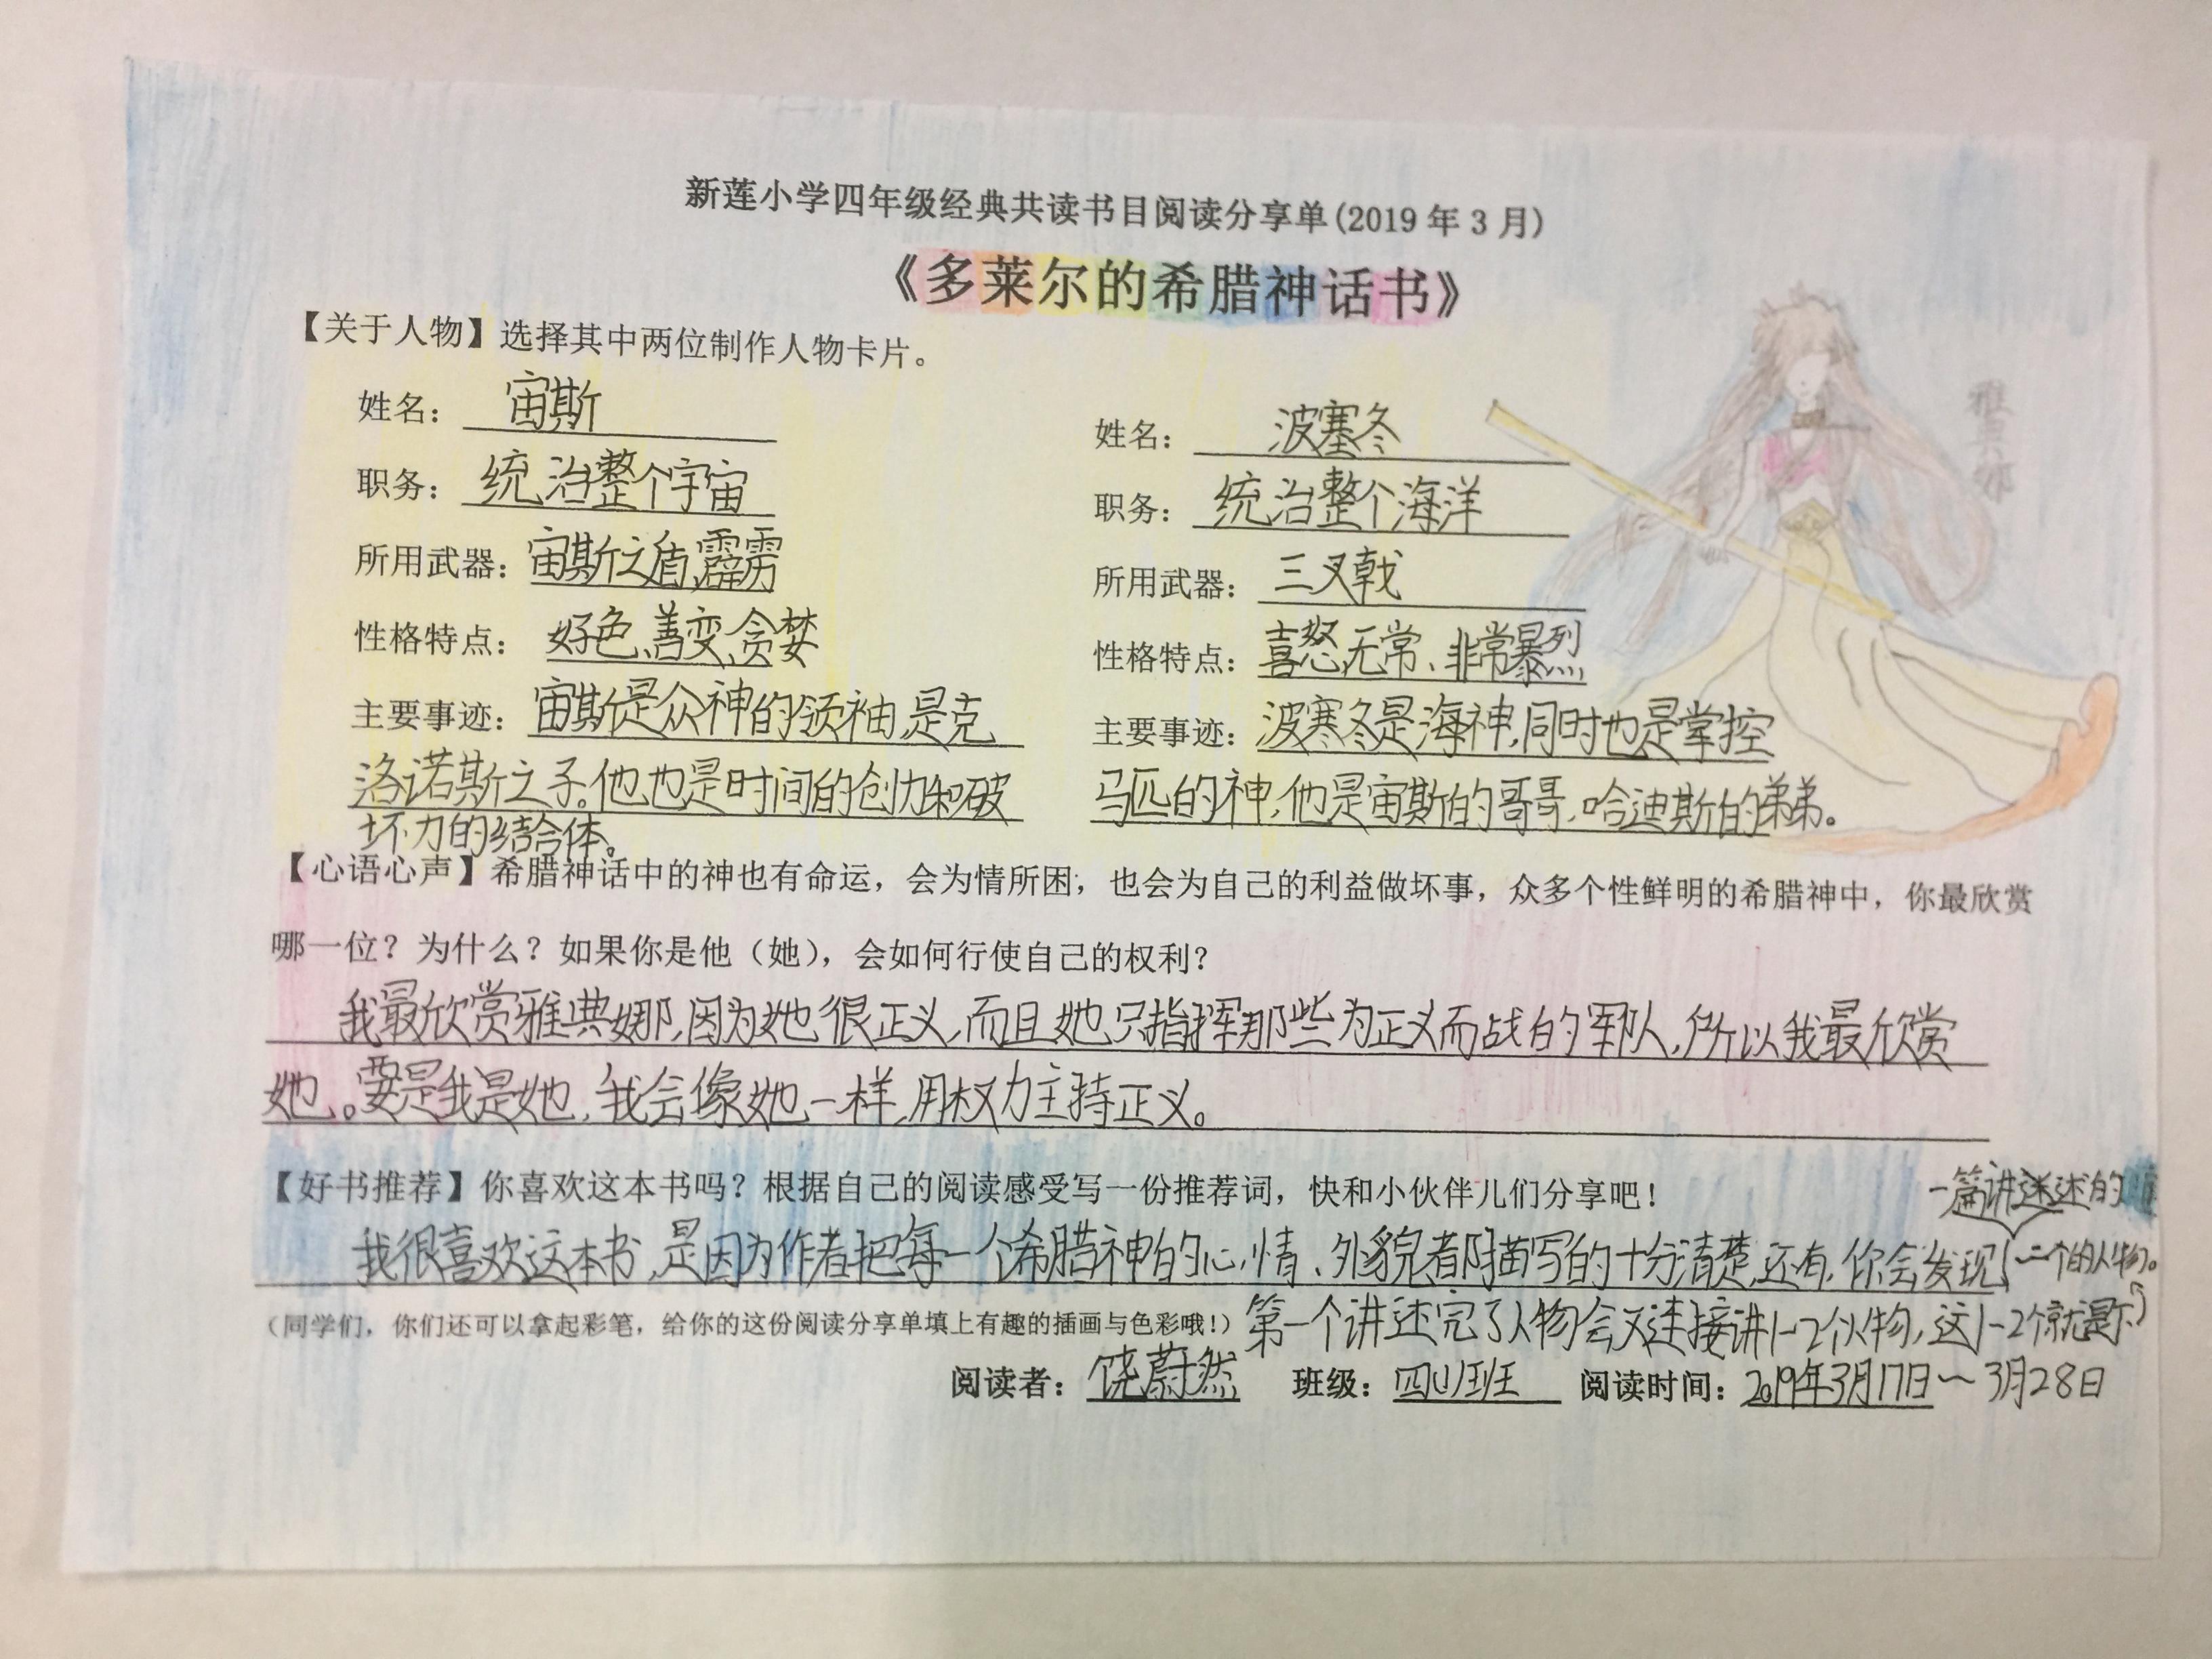 新莲小学四年级经典共读书目阅读分享单(2019年3月)
《多莱尔的希腊神话书》
【关于人物】选择其中两位制作人物卡片。
姓名：宙斯
职务：统治整个宇宙
所用武器：宙斯之盾,霹雳
性格特点：好色、善变、贪婪
主要事迹：宙斯是众神的领袖,是克
洛诺斯之子。他也是时间的创力和破
坏力的结合体。
姓名：波塞冬
职务：统治整个海洋
所用武器：三叉戟
性格特点：喜怒无常、非常暴烈
主要事迹：波塞冬是海神,同时也是掌控
马匹的神,他是宙斯的哥哥,哈迪斯的弟弟。
雅典娜
【心语心声】希腊神话中的神也有命运，会为情所困，也会为自己的利益做坏事，众多个性鲜明的希腊神中，你最欣赏
哪一位？为什么？如果你是他（她），会如何行使自己的权利？
我最欣赏雅典娜,因为她很正义,而且她只指挥那些为正义而战的军队,所以我最欣赏
她。要是我是她,我会像她一样,用权力主持正义。
【好书推荐】你喜欢这本书吗？根据自己的阅读感受写一份推荐词，快和小伙伴儿们分享吧！
一篇讲述的
我很喜欢这本书,是因为作者把每一个希腊神的心情、外貌都描写的十分清楚,还有,你会发现
二个的人物。
（同学们，你们还可以拿起彩笔，给你的这份阅读分享单填上有趣的插画与色彩哦！）
第一个讲述完了人物会又连接讲1-2个人物,这1-2个就是下
阅读者：饶蔚然 班级：四(1)班 阅读时间：2019年3月17日~3月28日